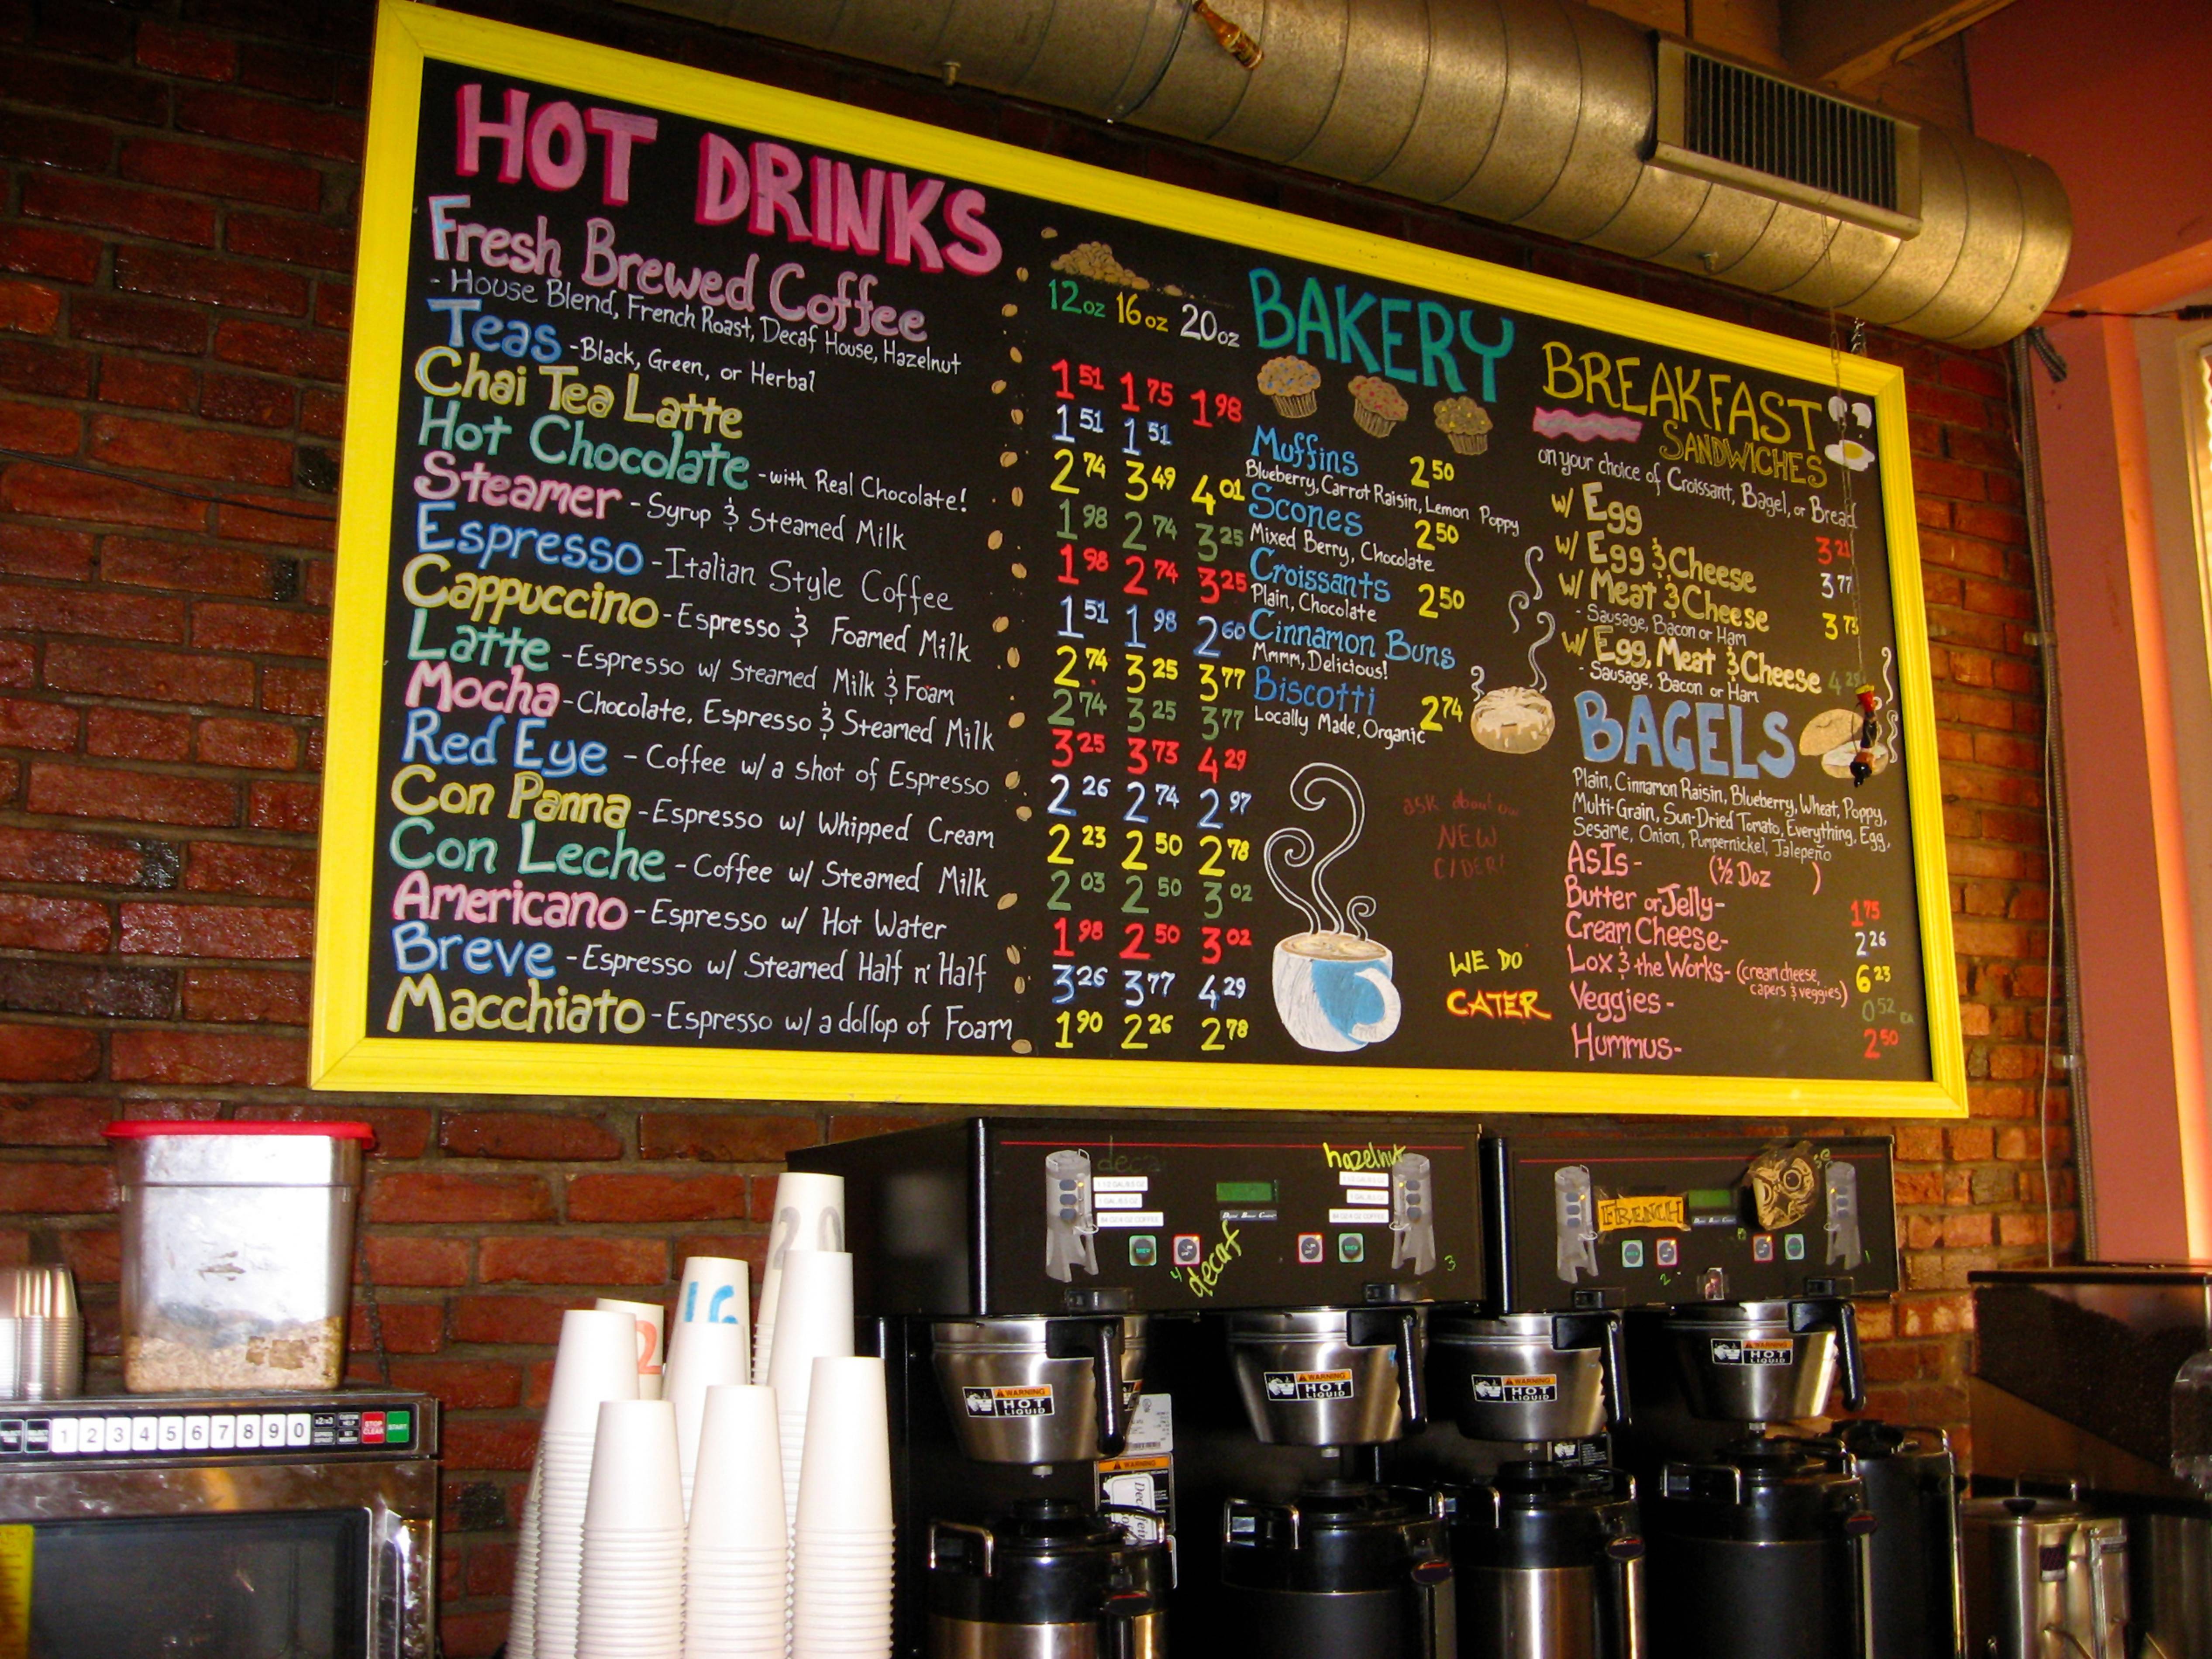 HOT DRINKS
Fresh Brewed Coffee
- House Blend, French Roast, Decaf House, Hazelnut
Teas - Black, Green, or Herbal
Chai Tea Latte
Hot Chocolate - with Real Chocolate!
Steamer - Syrup & Steamed Milk
Espresso - Italian Style Coffee
Cappuccino - Espresso & Foamed Milk
Latte - Espresso w/ Steamed Milk & Foam
Mocha - Chocolate, Espresso & Steamed Milk
Red Eye - Coffee w/ a shot of Espresso
Con Panna - Espresso w/ Whipped Cream
Con Leche - Coffee w/ Steamed Milk
Americano - Espresso w/ Hot Water
Breve - Espresso w/ Steamed Half n' Half
Macchiato - Espresso w/ a dollop of Foam
12oz 16oz 20oz
1 51 1 75 1 98
1 51 1 51
2 74 3 49 4 01
1 98 2 74 3 25
1 98 2 74 3 25
1 51 1 98 2 60
2 74 3 25 3 77
2 74 3 25 3 77
3 25 3 73 4 29
2 26 2 74 2 97
2 23 2 50 2 78
2 03 2 50 3 02
1 98 2 50 3 02
3 26 3 77 4 29
1 90 2 26 2 78
BAKERY
Muffins 2 50
Blueberry, Carrot Raisin, Lemon Poppy
Scones 2 50
Mixed Berry, Chocolate
Croissants 2 50
Plain, Chocolate
Cinnamon Buns
Mmmm, Delicious!
Biscotti 2 74
Locally Made, Organic
ask about our
NEW
CIDER!
WE DO
CATER
BREAKFAST
SANDWICHES
on your choice of Croissant, Bagel, or Bread
w/ Egg 3 21
w/ Egg & Cheese 3 77
w/ Meat & Cheese 3 73
- Sausage, Bacon or Ham
w/ Egg, Meat & Cheese 4 25
- Sausage, Bacon or Ham
BAGELS
Plain, Cinnamon Raisin, Blueberry, Wheat, Poppy,
Multi-Grain, Sun-Dried Tomato, Everything, Egg,
Sesame, Onion, Pumpernickel, Jalepeño
AsIs - (1/2 Doz )
Butter or Jelly - 1 75
Cream Cheese - 2 26
Lox & the Works - (cream cheese, 6 23
capers & veggies)
Veggies - 0 52 EA
Hummus - 2 50
decaf
hazelnut
decaf
4
3
FRENCH
2
1
20
16
2
1 2 3 4 5 6 7 8 9 0
STOP
CLEAR
START
WARNING
HOT
LIQUID
WARNING
HOT
LIQUID
WARNING
HOT
LIQUID
WARNING
HOT
LIQUID
WARNING